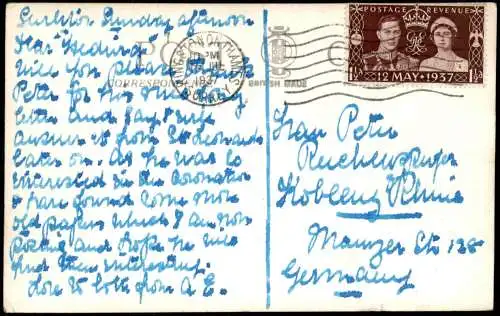 Sunday afternoon
Dear Hedwig
Will you please
Peter for his nice
letter and say I will
answer it from St Leonards
later on. As he was so
interested in the Coronation
I have found some more
old papers which I am now
posting and hope he will
find them interesting.
Love to both from A E.
KINGSTON ON THAMES
SURREY
1937
BRITISH MADE
POSTAGE REVENUE
1½D 12 MAY 1937 1½D
Peter
Koblenz Rhine
Mainzer Str 128
Germany